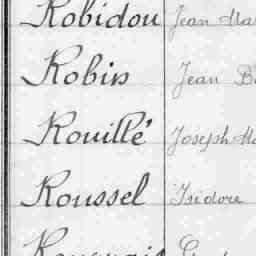 Robidou Jean Ma
Robin Jean B
Rouillé Joseph Ma
Roussel Isidore